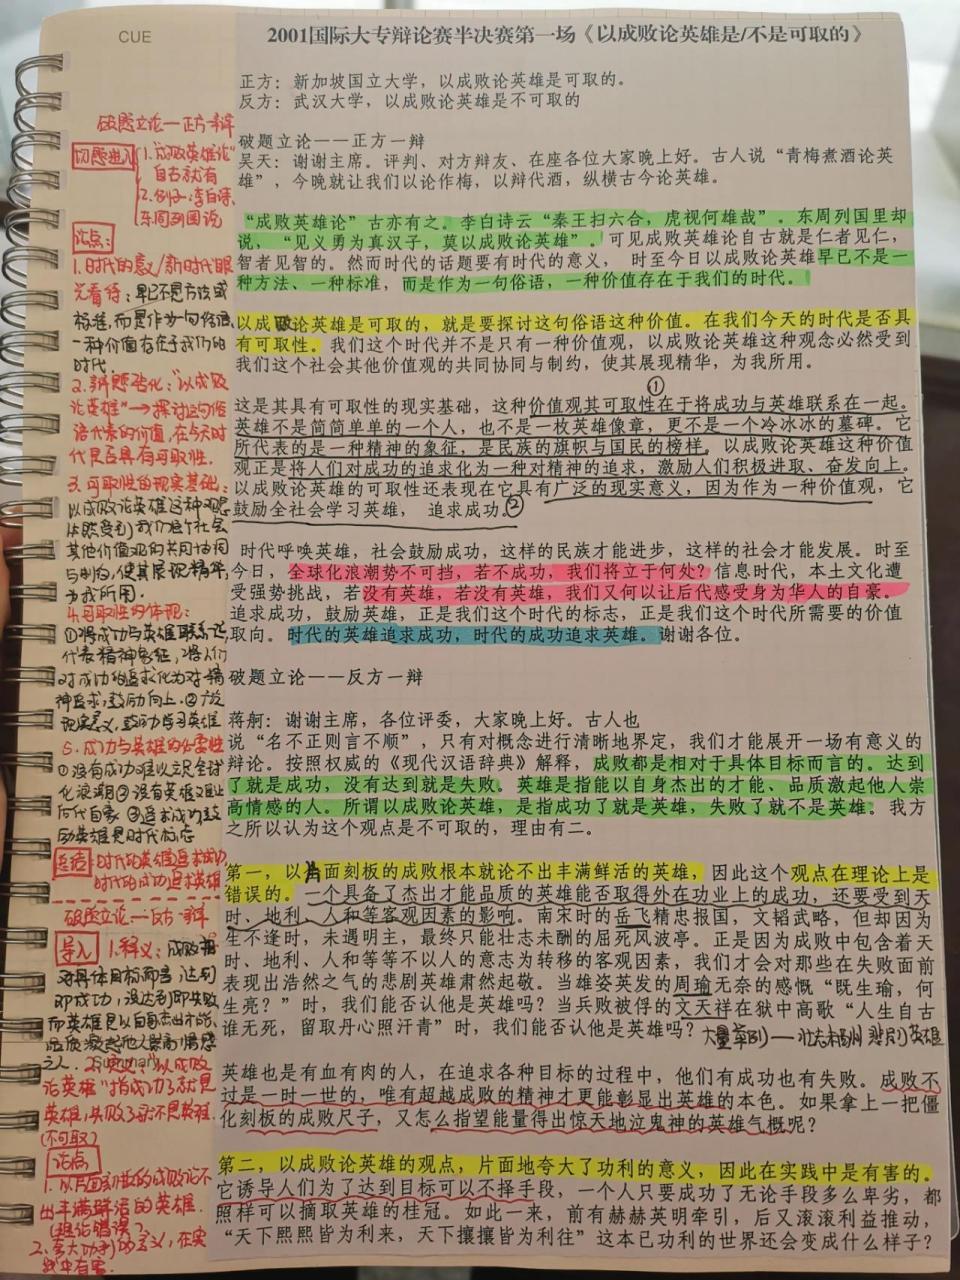 CUE
2001国际大专辩论赛半决赛第一场《以成败论英雄是/不是可取的》
正方：新加坡国立大学，以成败论英雄是可取的。
反方：武汉大学，以成败论英雄是不可取的
破题立论——正方一辩
吴天：谢谢主席。评判、对方辩友、在座各位大家晚上好。古人说“青梅煮酒论英
雄”，今晚就让我们以论作梅，以辩代酒，纵横古今论英雄。
“成败英雄论”古亦有之。李白诗云“秦王扫六合，虎视何雄哉”。东周列国里却
说，“见义勇为真汉子，莫以成败论英雄”。可见成败英雄论自古就是仁者见仁，
智者见智的。然而时代的话题要有时代的意义， 时至今日以成败论英雄早已不是一
种方法、一种标准，而是作为一句俗语，一种价值存在于我们的时代。
以成败论英雄是可取的，就是要探讨这句俗语这种价值。在我们今天的时代是否具
有可取性。我们这个时代并不是只有一种价值观，以成败论英雄这种观念必然受到
我们这个社会其他价值观的共同协同与制约，使其展现精华，为我所用。
①
这是其具有可取性的现实基础，这种价值观其可取性在于将成功与英雄联系在一起。
英雄不是简简单单的一个人，也不是一枚英雄像章，更不是一个冷冰冰的墓碑。它
所代表的是一种精神的象征，是民族的旗帜与国民的榜样。以成败论英雄这种价值
观正是将人们对成功的追求化为一种对精神的追求，激励人们积极进取、奋发向上。
以成败论英雄的可取性还表现在它具有广泛的现实意义，因为作为一种价值观，它
鼓励全社会学习英雄， 追求成功。②
时代呼唤英雄，社会鼓励成功，这样的民族才能进步，这样的社会才能发展。时至
今日，全球化浪潮势不可挡，若不成功，我们将立于何处？信息时代，本土文化遭
受强势挑战，若没有英雄，若没有英雄，我们又何以让后代感受身为华人的自豪。
追求成功，鼓励英雄，正是我们这个时代的标志，正是我们这个时代所需要的价值
取向。时代的英雄追求成功，时代的成功追求英雄。谢谢各位。
破题立论——反方一辩
蒋舸：谢谢主席，各位评委，大家晚上好。古人也
说“名不正则言不顺”，只有对概念进行清晰地界定，我们才能展开一场有意义的
辩论。按照权威的《现代汉语辞典》解释，成败都是相对于具体目标而言的。达到
了就是成功，没有达到就是失败。英雄是指能以自身杰出的才能、品质激起他人崇
高情感的人。所谓以成败论英雄，是指成功了就是英雄，失败了就不是英雄。我方
之所以认为这个观点是不可取的，理由有二。
第一，以片面刻板的成败根本就论不出丰满鲜活的英雄，因此这个观点在理论上是
错误的。一个具备了杰出才能品质的英雄能否取得外在功业上的成功，还要受到天
时、地利、人和等客观因素的影响。南宋时的岳飞精忠报国，文韬武略，但却因为
生不逢时，未遇明主，最终只能壮志未酬的屈死风波亭。正是因为成败中包含着天
时、地利、人和等等不以人的意志为转移的客观因素，我们才会对那些在失败面前
表现出浩然之气的悲剧英雄肃然起敬。当雄姿英发的周瑜无奈的感慨“既生瑜，何
生亮？”时，我们能否认他是英雄吗？当兵败被俘的文天祥在狱中高歌“人生自古
谁无死，留取丹心照汗青”时，我们能否认他是英雄吗？大量举例—壮志未酬 悲剧英雄
英雄也是有血有肉的人，在追求各种目标的过程中，他们有成功也有失败。成败不
过是一时一世的，唯有超越成败的精神才更能彰显出英雄的本色。如果拿上一把僵
化刻板的成败尺子，又怎么指望能量得出惊天地泣鬼神的英雄气概呢？
第二，以成败论英雄的观点，片面地夸大了功利的意义，因此在实践中是有害的。
它诱导人们为了达到目标可以不择手段，一个人只要成功了无论手段多么卑劣，都
照样可以摘取英雄的桂冠。如此一来，前有赫赫英明牵引，后又滚滚利益推动，
“天下熙熙皆为利来，天下攘攘皆为利往”这本已功利的世界还会变成什么样子？
破题立论—正方一辩
切题进入
1.“成败英雄论”
自古就有
2.例子：李白诗、
东周列国说
论点：
1.时代的意义/新时代眼
光看待：早已不是方法或
标准，而是作为一句俗语、
一种价值存在于我们的
时代.
2.辩题转化：“以成败
论英雄”→探讨这句俗
语代表的价值，在今天时
代是否具有可取性.
3.可取性的现实基础：
以成败论英雄这种观念
必然受到我们这个社会
其他价值观的共同协同
与制约，使其展现精华，
为我所用.
4.可取性的体现：
①将成功与英雄联系起
代表精神象征，将人们
对成功的追求化为对精
神追求，鼓励向上.②广泛
现实意义，鼓励学习英雄
5.成功与英雄的必要性
①没有成功难以立足全球
化浪潮②没有英雄难让
后代自豪 ③追求成功鼓
励英雄是时代标志
总结：时代的英雄追求成功
时代的成功追求英雄
破题立论—反方一辩
导入 1.释义：成败相
对具体目标而言，达到
即成功，没达到即失败
而英雄是以自身杰出才能、
品质激起他人崇高情感
之人.
论英雄”指成功了就是
英雄，失败了就不是英雄.
(不可取)
论点
1.以片面刻板的成败论不
出丰满鲜活的英雄.
(理论错误)
2.夸大功利的意义，在实
践中有害.